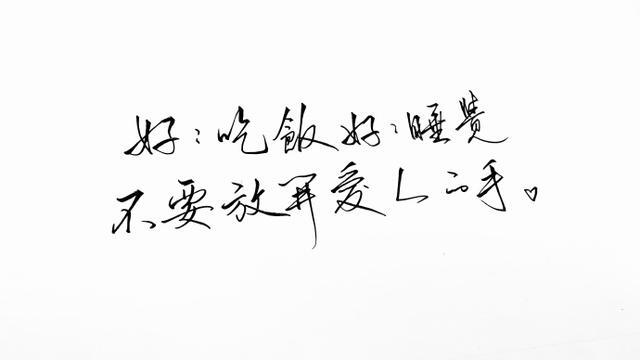 好:吃飯好:睡覺
不要放開愛人的手。♡